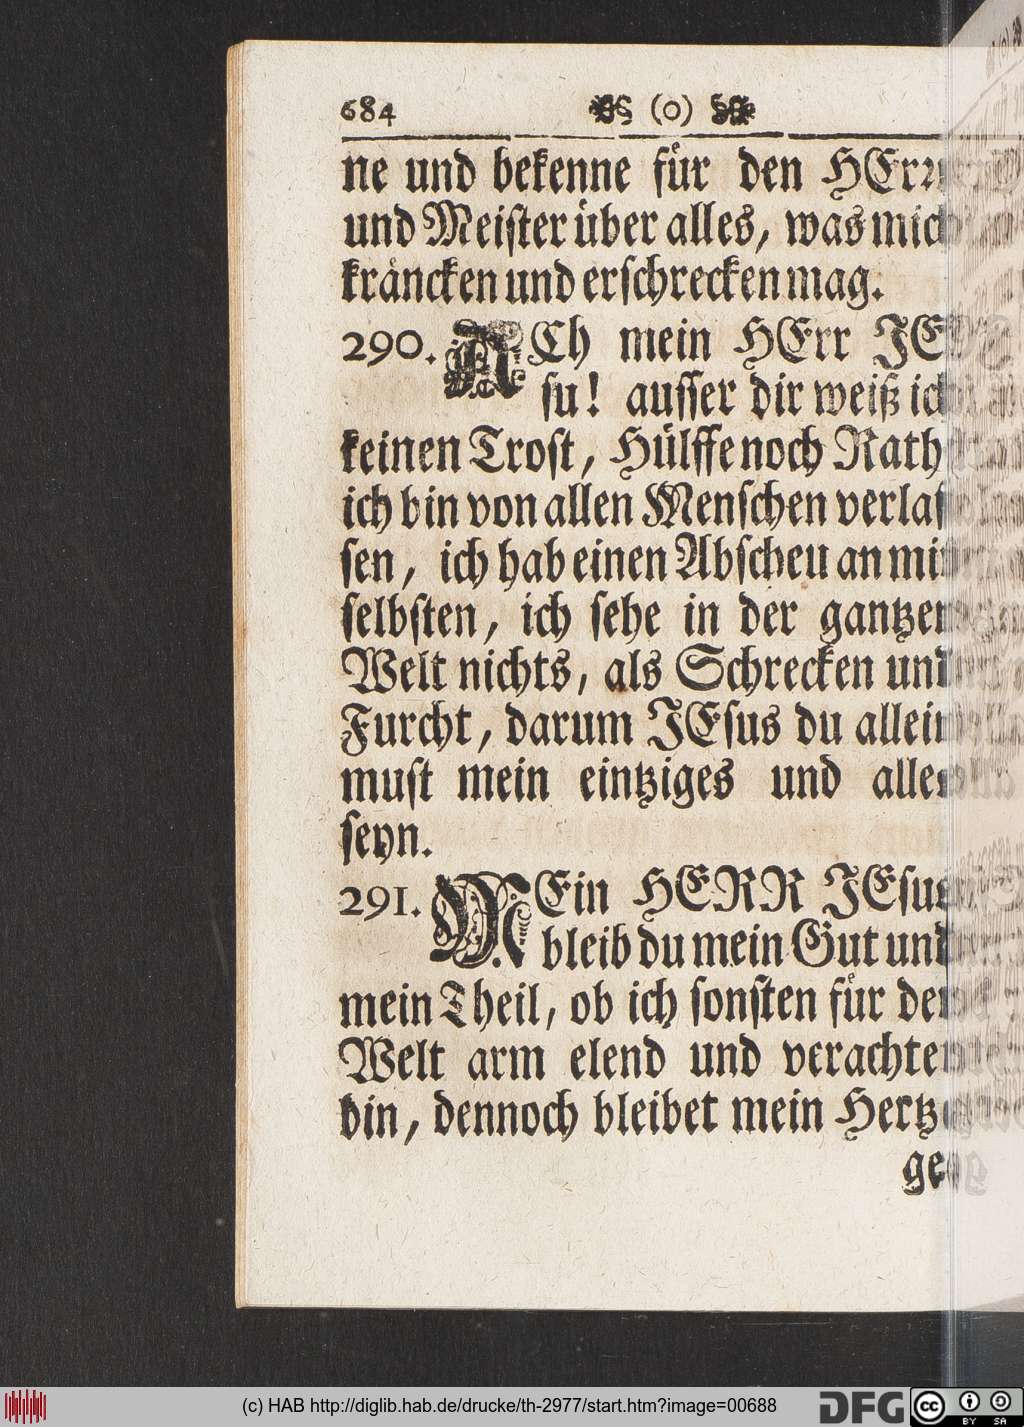 684 (0)
ne und bekenne für den HErrn
und Meiſter über alles, was mich
kräncken und erſchrecken mag.
290. ACh mein HErr JE⸗
ſu! auſſer dir weiß ich
keinen Troſt, Hülffe noch Rath,
ich bin von allen Menſchen verlaſ⸗
ſen, ich hab einen Abſcheu an mir
ſelbſten, ich ſehe in der gantzen
Welt nichts, als Schrecken und
Furcht, darum JEſus du allein
muſt mein eintziges und alles
ſeyn.
291. MEin HERR JEſu
bleib du mein Gut und
mein Theil, ob ich ſonſten für der
Welt arm elend und verachtet
bin, dennoch bleibet mein Hertz
ge⸗
(c) HAB http://diglib.hab.de/drucke/th-2977/start.htm?image=00688
DFG
cc BY SA